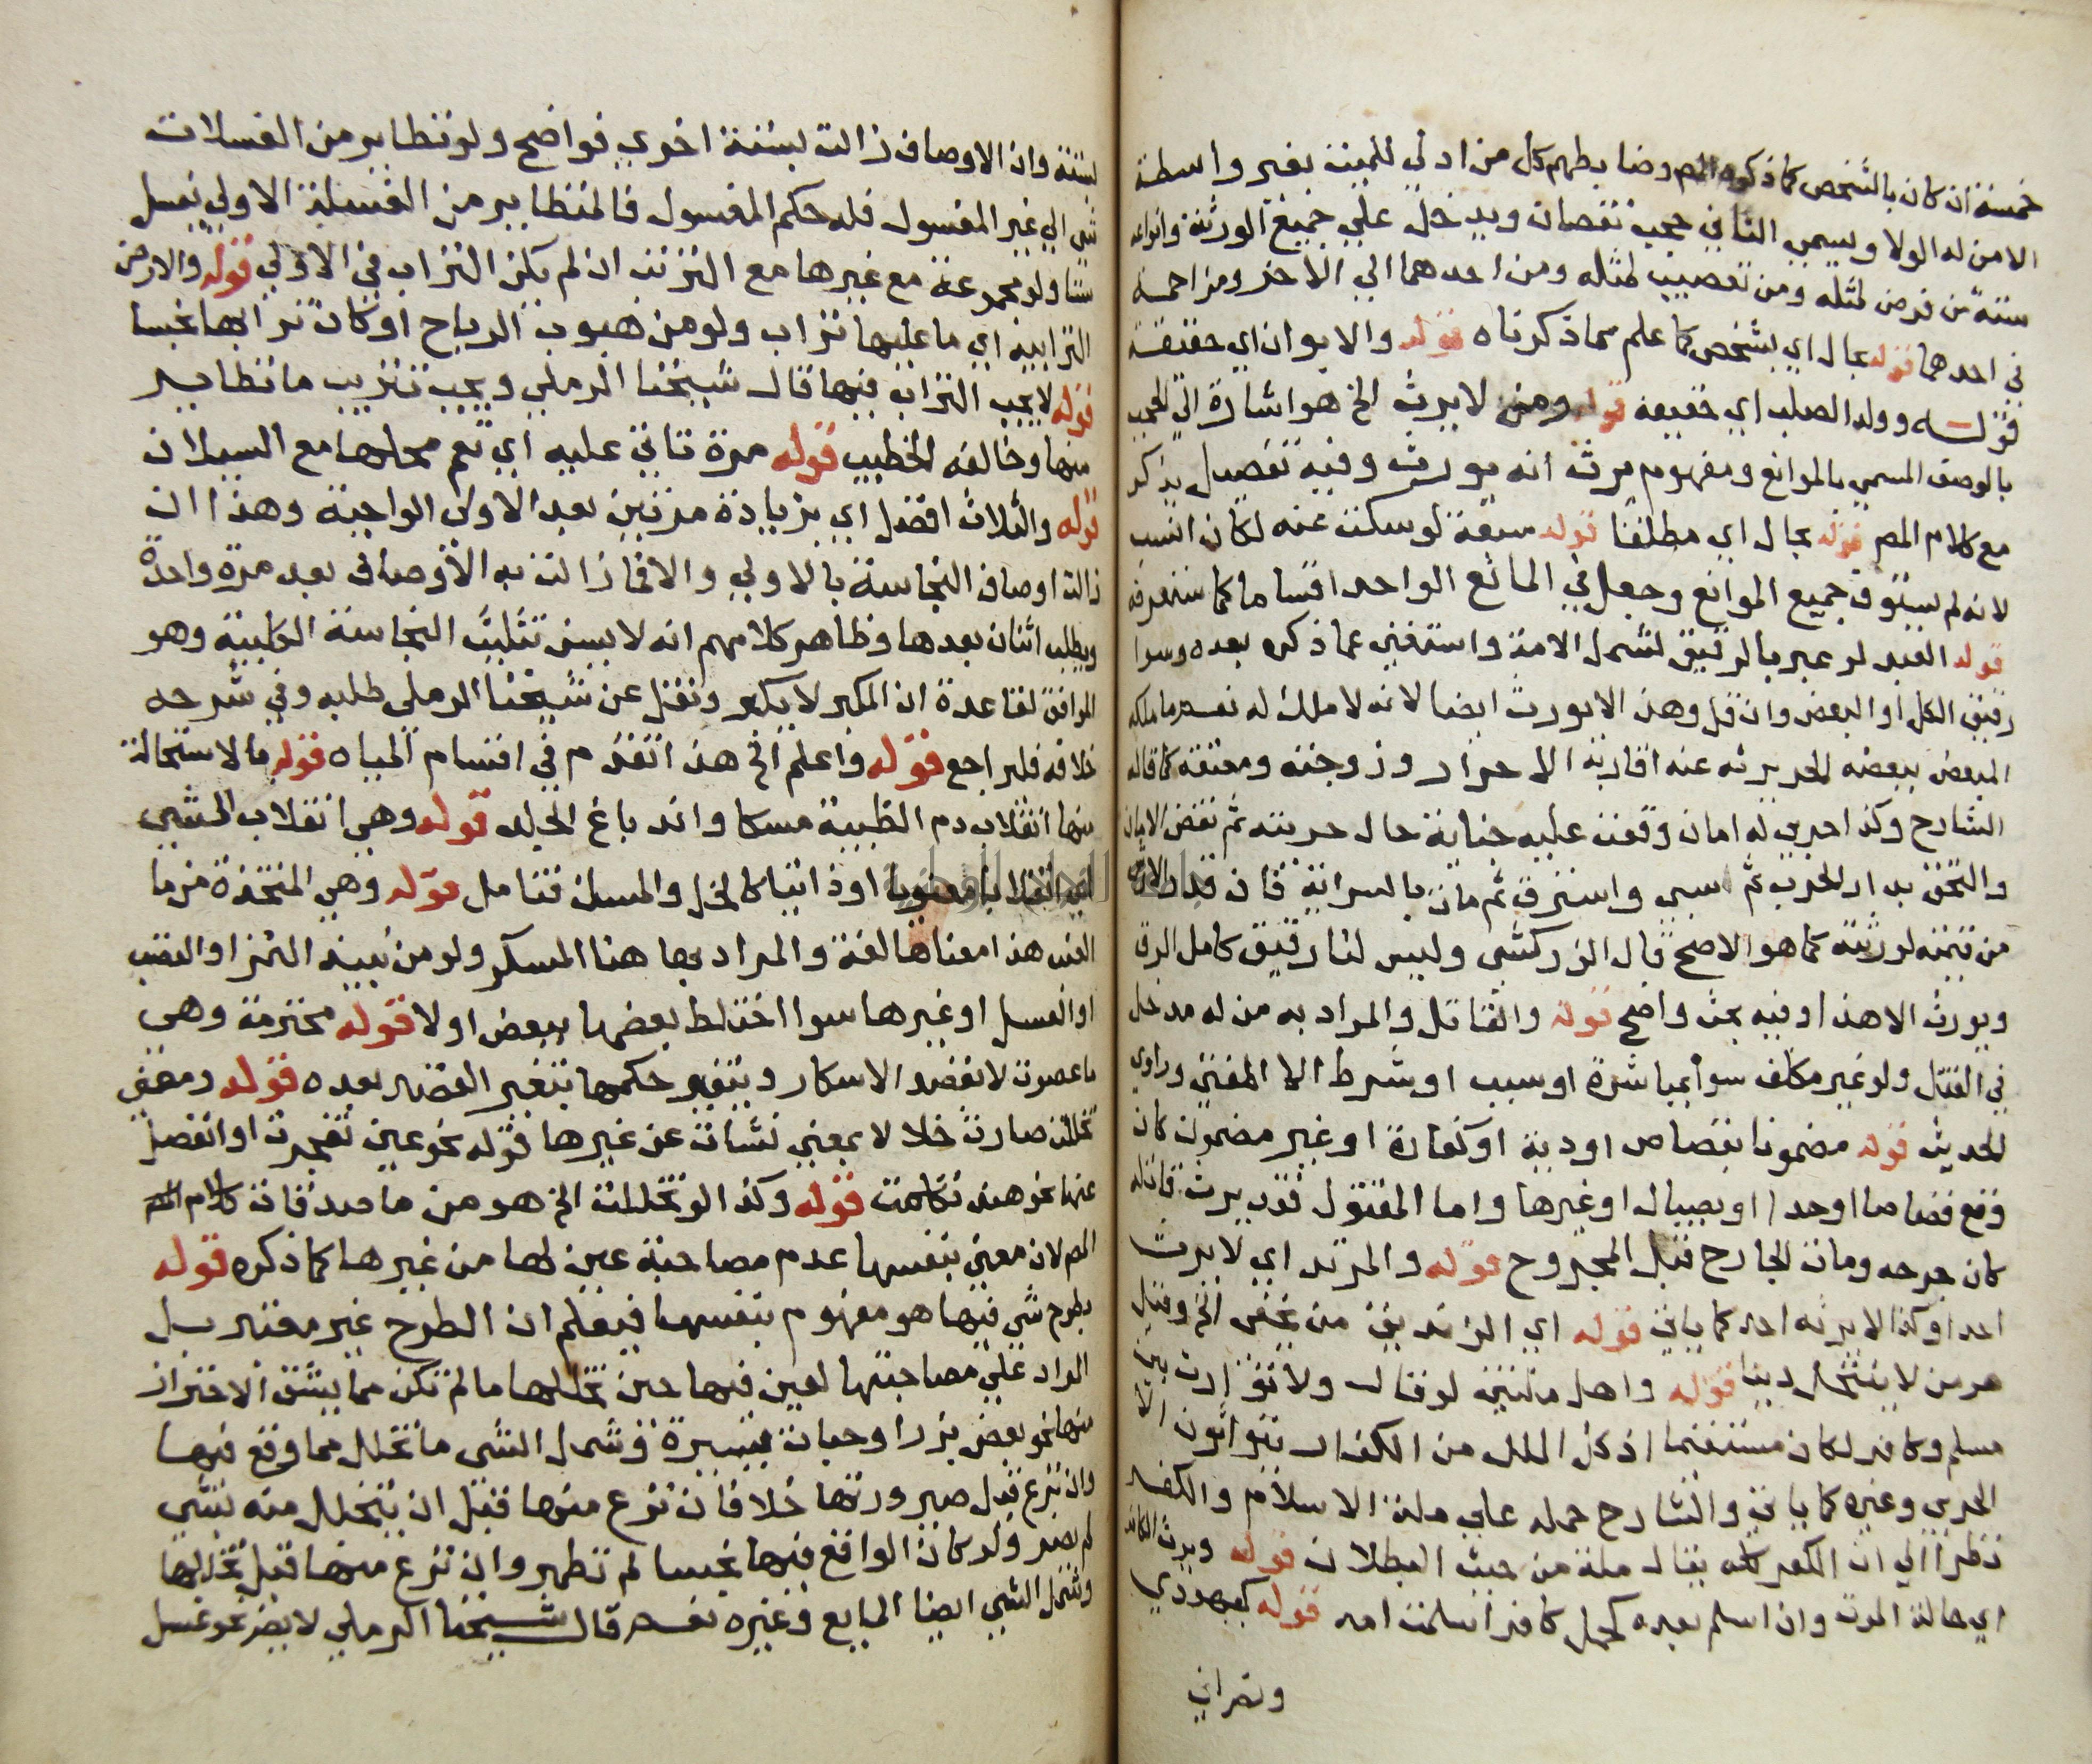 خمسة ان كان بالشخص كما ذكره المص وضابطهم كل من ادلى للميت بغير واسطة
الا من له الولا ويسمى الثاني حجب نقصان ويدخل على جميع الورثة وانواعه
ستة من فرض لمثله ومن تعصيب لمثله ومن احدهما الى الاخر ومزاحمة
في احدهما قوله بحال اي بشخص كما علم مما ذكرناه قوله والابوان اي حقيقة
قوله وولد الصلب اي حقيقة قوله ومن لا يرث الخ هو اشارة الى الحجب
بالوصف المسمى بالموانع ومفهوم يرث انه يورث وفيه تفصيل يذكر
مع كلام المص قوله بحال اي مطلقا قوله سبعة لو سكت عنه لكان انسب
لانه لم يستوف جميع الموانع وجعل في المانع الواحد اقساما كما ستعرفه
قوله العبد لو عبر بالرقيق لشمل الامة واستغنى عما ذكره بعده وسوا
رقيق الكل او البعض وان قل وهذا لا يورث ايضا لانه لا ملك له نعم ما ملكه
المبعض ببعضه الحر يرثه عنه اقاربه الاحرار وزوجته ومعتقه كما قاله
الشارح وكذا حربي له امان وقعت عليه جناية حال حريته ثم نقض الامان
والتحق بدار الحرب ثم سبي واسترق ثم مات بالسراية فان قدر الارش
من قيمته لورثته كما هو الاصح قال الزركشي وليس لنا رقيق كامل الرق
ويورث الا هذا وفيه بحث واضح قوله والقاتل والمراد به من له مدخل
في القتل ولو غير مكلف سوا بمباشرة او سبب او شرط الا المفتي وراوي
الحديث قوله مضمونا بقصاص او دية او كفارة او غير مضمون كان
وقع قصاصا او حدا او بصيال او غيرها واما المقتول فقد يرث قاتله
كان جرحه ومات الجارح قبل المجروح قوله والمرتد اي لا يرث
احدا وكذا لا يرثه احد كما ياتي قوله اي الزنديق من يخفى الخ وقيل
هو من لا ينتحل دينا قوله واهل ملتين لو قال ولا توارث بين
مسلم وكافر لكان مستقيما اذ كل الملل من الكفار يتوارثون الا
الحربي وغيره كما ياتي والشارح حمله على ملة الاسلام والكفر
نظرا الى ان الكفر كله يقال ملة من حيث البطلان قوله ويرث الكافر
اي حالة الموت وان اسلم بعده كحمل كافر اسلمت امه قوله كيهودي
ونصراني
بستة وان الاوصاف زالت بستة اخرى فواضح ولو تطاير من الغسلات
شي الى غير المغسول فله حكم المغسول فالمتطاير من الغسلة الاولى يغسل
ستا ولو مجموعة مع غيرها مع التترتيب ان لم يكن التراب في الاولى قوله والارض
الترابية اي ما عليها تراب ولو من هبوب الرياح او كان ترابها نجسا
قوله لا يجب التراب فيها قال شيخنا الرملي ويجب تتريب ما تطاير
منها وخالفه الخطيب قوله مرة تاتي عليه اي تعم محلها مع السيلان
قوله والثلاث افضل اي بزيادة مرتين بعد الاولى الواجبة وهذا ان
زالت اوصاف النجاسة بالاولى والا فما زالت به الاوصاف يعد مرة واحدة
ويطلب اثنان بعدها وظاهر كلامهم انه لا يسن تثليث النجاسة الكلبية وهو
الموافق لقاعدة ان المكبر لا يكبر ونقل عن شيخنا الرملي طلبه وفي شرحه
خلافه فليراجع قوله واعلم الخ هذا تقدم في اقسام المياه قوله بالاستحالة
منها انقلاب دم الظبية مسكا واندباغ الجلد قوله وهي انقلاب الشي
اي انقلابا معنويا او ذاتيا كالخل والمسك فتامل قوله وهي المتخذة من ما
العنب هذا معناها لغة والمراد بها هنا المسكر ولو من نبيذ التمر او القصب
او العسل او غيرها سوا اختلط بعضها ببعض او لا قوله محترمة وهي
ما عصرت لا بقصد الاسكار ويتغير حكمها بتغير القصد بعده قوله ومعنى
تخللت صارت خلا لا بمعنى نشات عن غيرها قوله نحو عين تفجرت او انفصل
عنها نحو هذه تكاملت قوله وكذا لو تخللت الخ هو من ما صدقات كلام
المص لان معنى بنفسها عدم مصاحبة عين لها من غيرها كما ذكره قوله
بطرح شي فيها هو مفهوم بنفسها فيعلم ان الطرح غير معتبر بل
المراد على مصاحبتها لعين فيها حين تخللها ما لم تكن مما يشق الاحتراز
منها نحو بعض بزر او حبات يسيرة وشمل الشي ما تخلل مما وقع فيها
وان نزع قبل صيرورتها خلا فان نزع منها قبل ان يتخلل منه شي
لم يضر ولو كان الواقع فيها نجسا لم تطهر وان نزع منها قبل تخللها
وشمل الشي ايضا المايع وغيره نعم قال شيخنا الرملي لا يضر نحو غسل